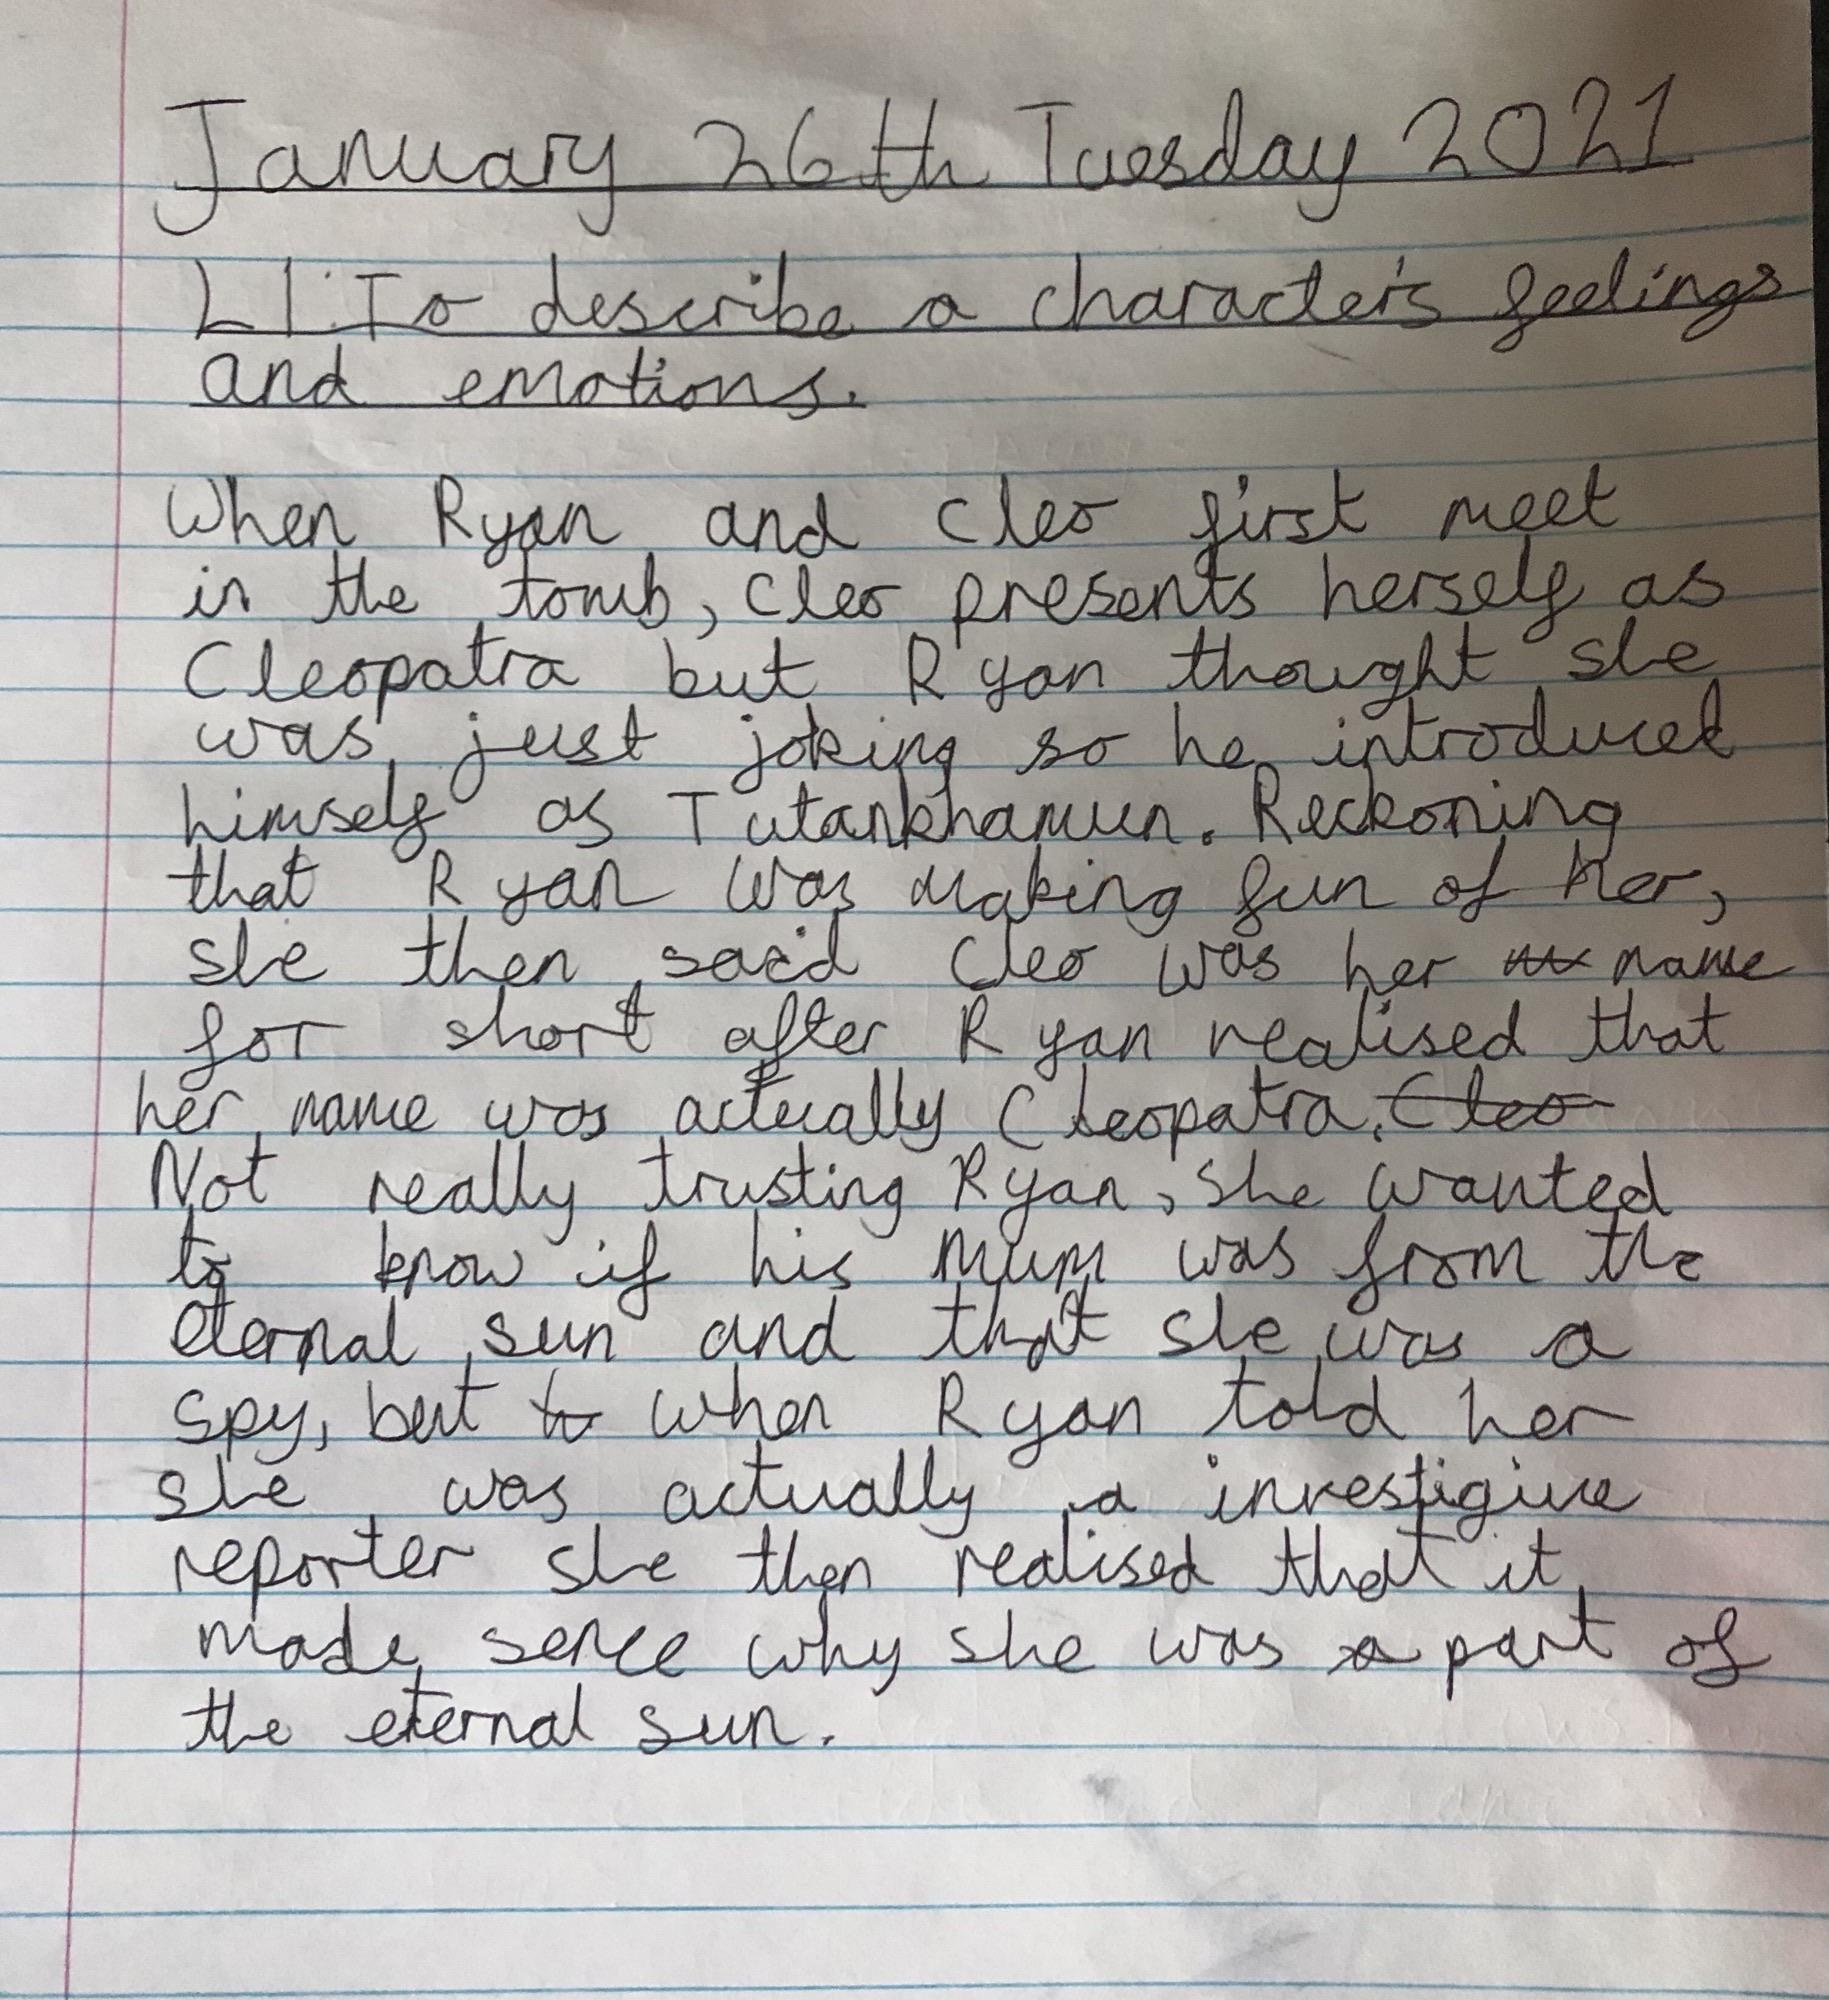 January 26th Tuesday 2021
LI: To describe a character's feelings
and emotions.
When Ryan and Cleo first meet
in the tomb, Cleo presents herself as
Cleopatra but Ryan thought she
was just joking so he introduced
himself as Tutankhamun. Reckoning
that Ryan was making fun of her,
she then said Cleo was her name
for short after Ryan realised that
her name was actually Cleopatra. Cleo
Not really trusting Ryan, she wanted
to know if his mum was from the
eternal sun and that she was a
spy, but to when Ryan told her
she was actually a investigive
reporter she then realised that it
made sence why she was a part of
the eternal sun.